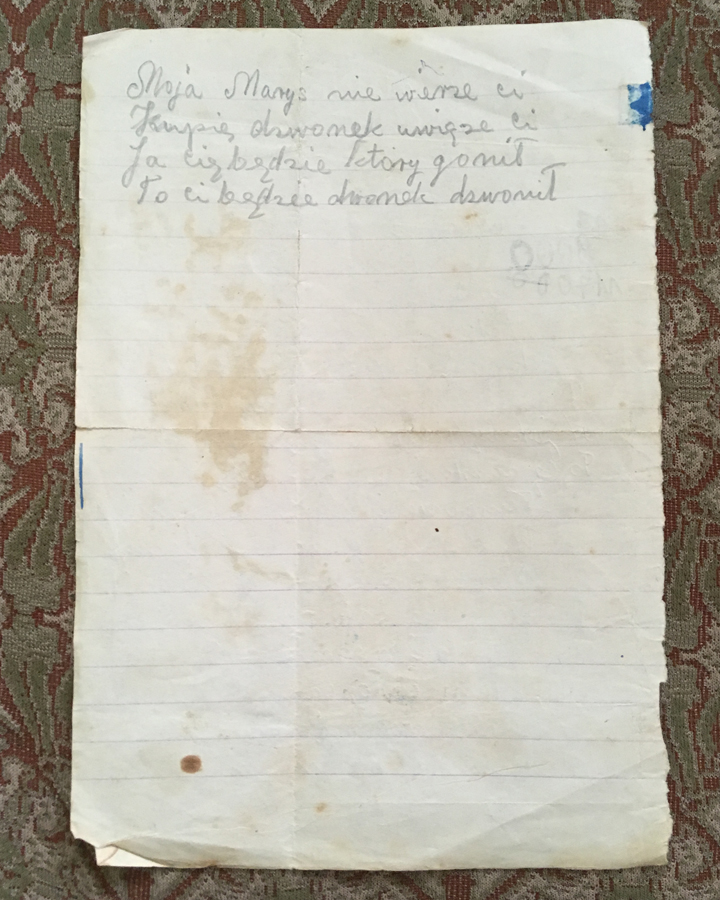 Moja Marys nie wierze ci
Kupię dzwonek uwięze ci
Ja cię będzie który gonił
To ci będzie dwonek dzwonił